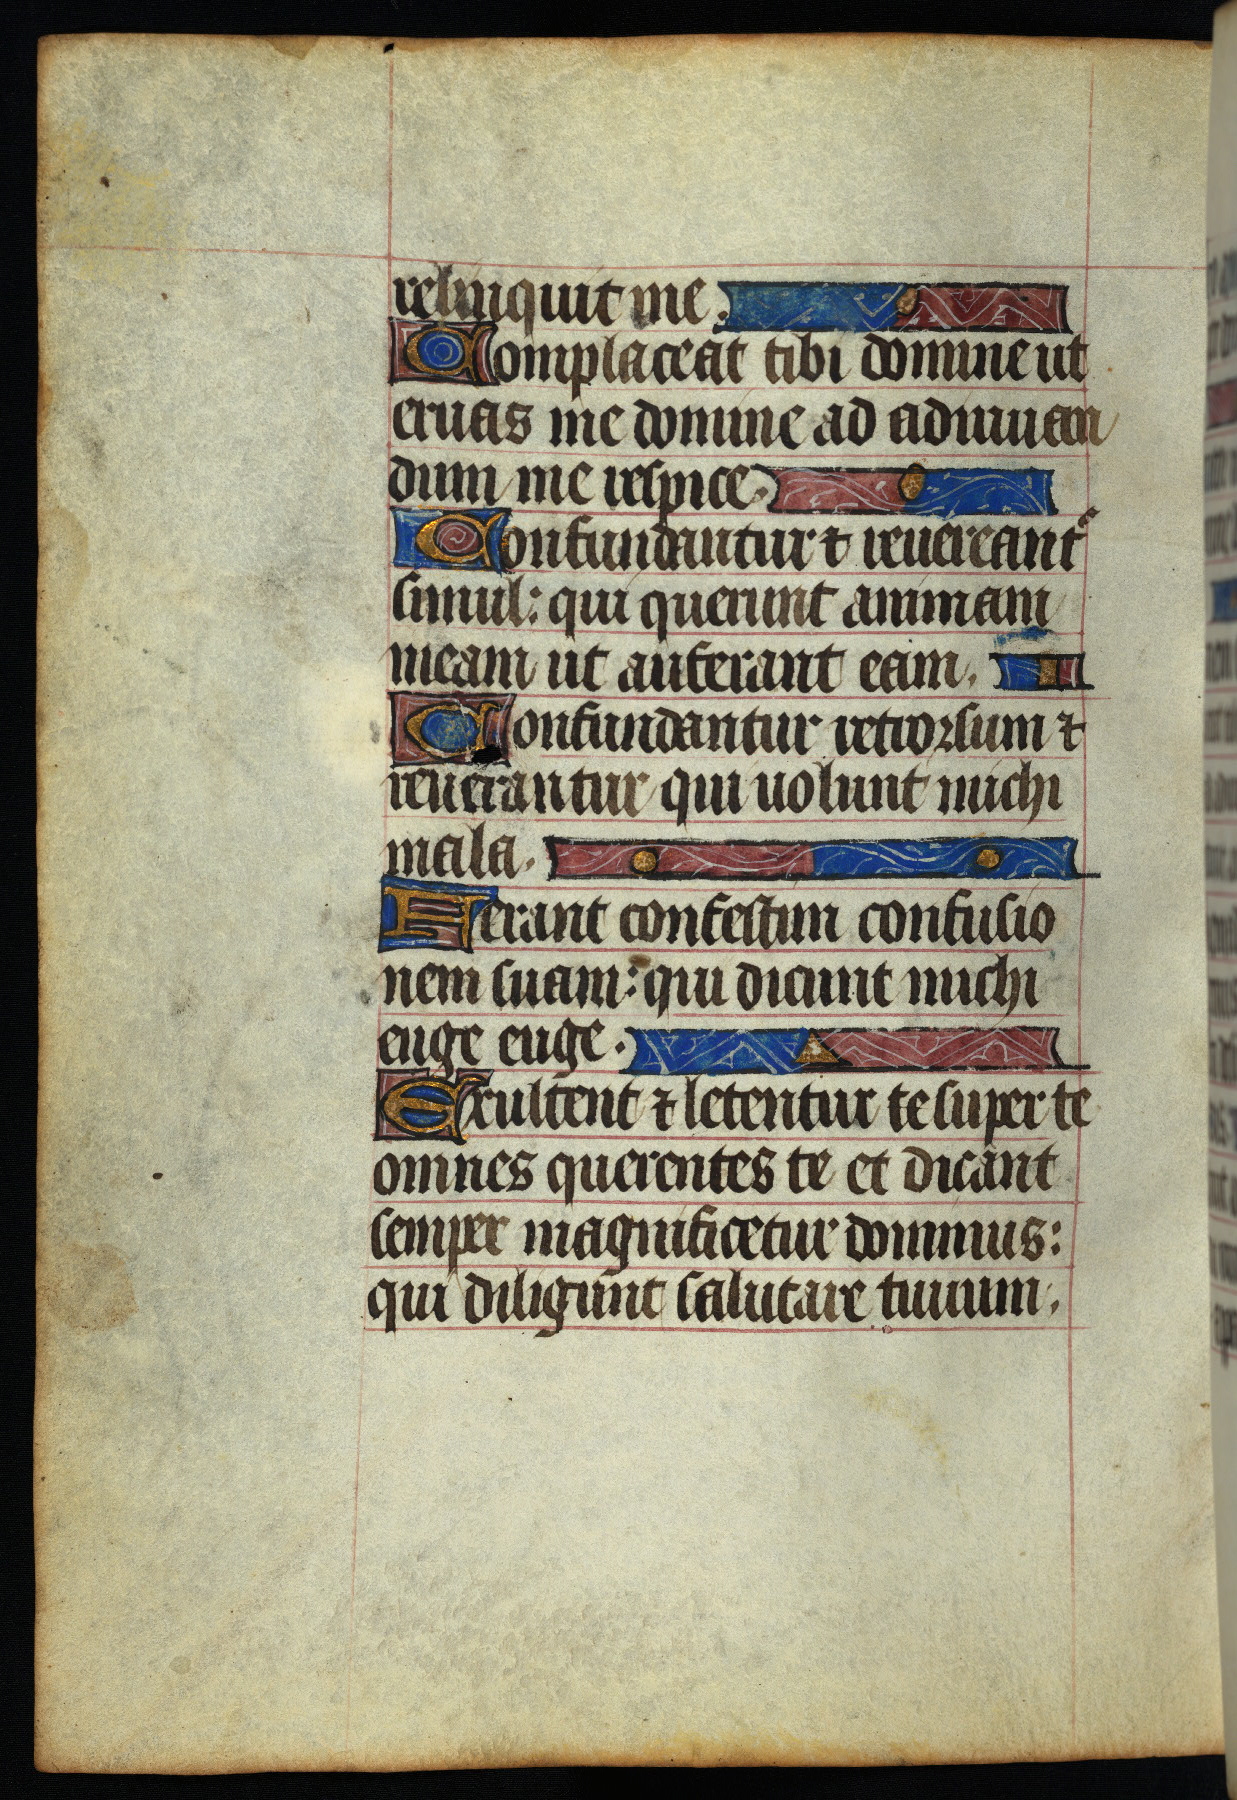 relinquit me.
Complaceat tibi domine ut
eruas me domine ad adiuuan
dum me respice.
Confundantur ⁊ reuereant᷑
simul: qui querunt animam
meam ut auferant eam.
Confundantur retrorsum ⁊
reuerantur qui uolunt michi
mala.
Ferant confestim confusio
nem suam: qui dicunt michi
euge euge.
Exultent ⁊ letentur te super te
omnes querentes te et dicant
semper magnificetur dominus:
qui diligunt salutare tuuum.